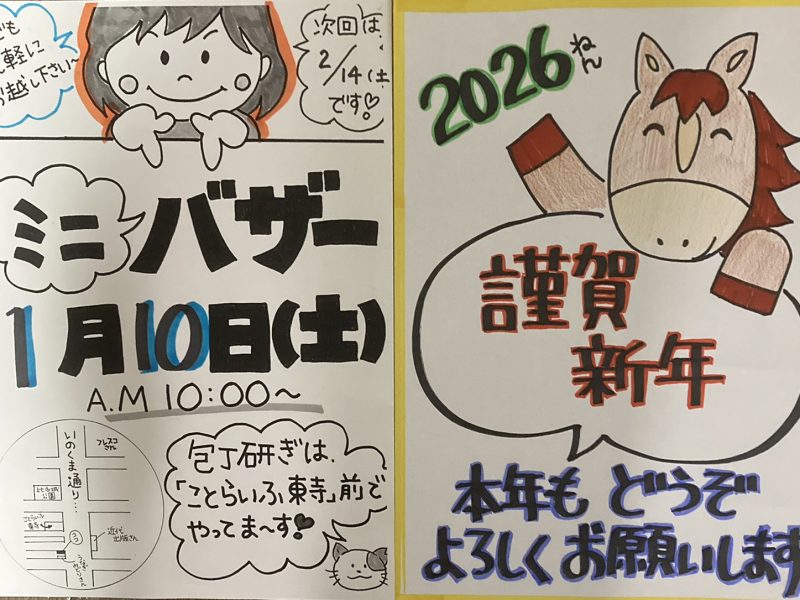 軽に
越し下さい〜
次回は、
2/14(土
です♡
ミニ バザー
1月10日(土)
A.M 10:00〜
いのくま通り…
フレスコ
さん
公園
ことらいふ
東寺
ココ
近代
出版さん
包丁研ぎは、
「ことらいふ東寺」前で
やってま〜す!♥
2026ねん
謹賀
新年
本年も どうぞ
よろしく お願いします